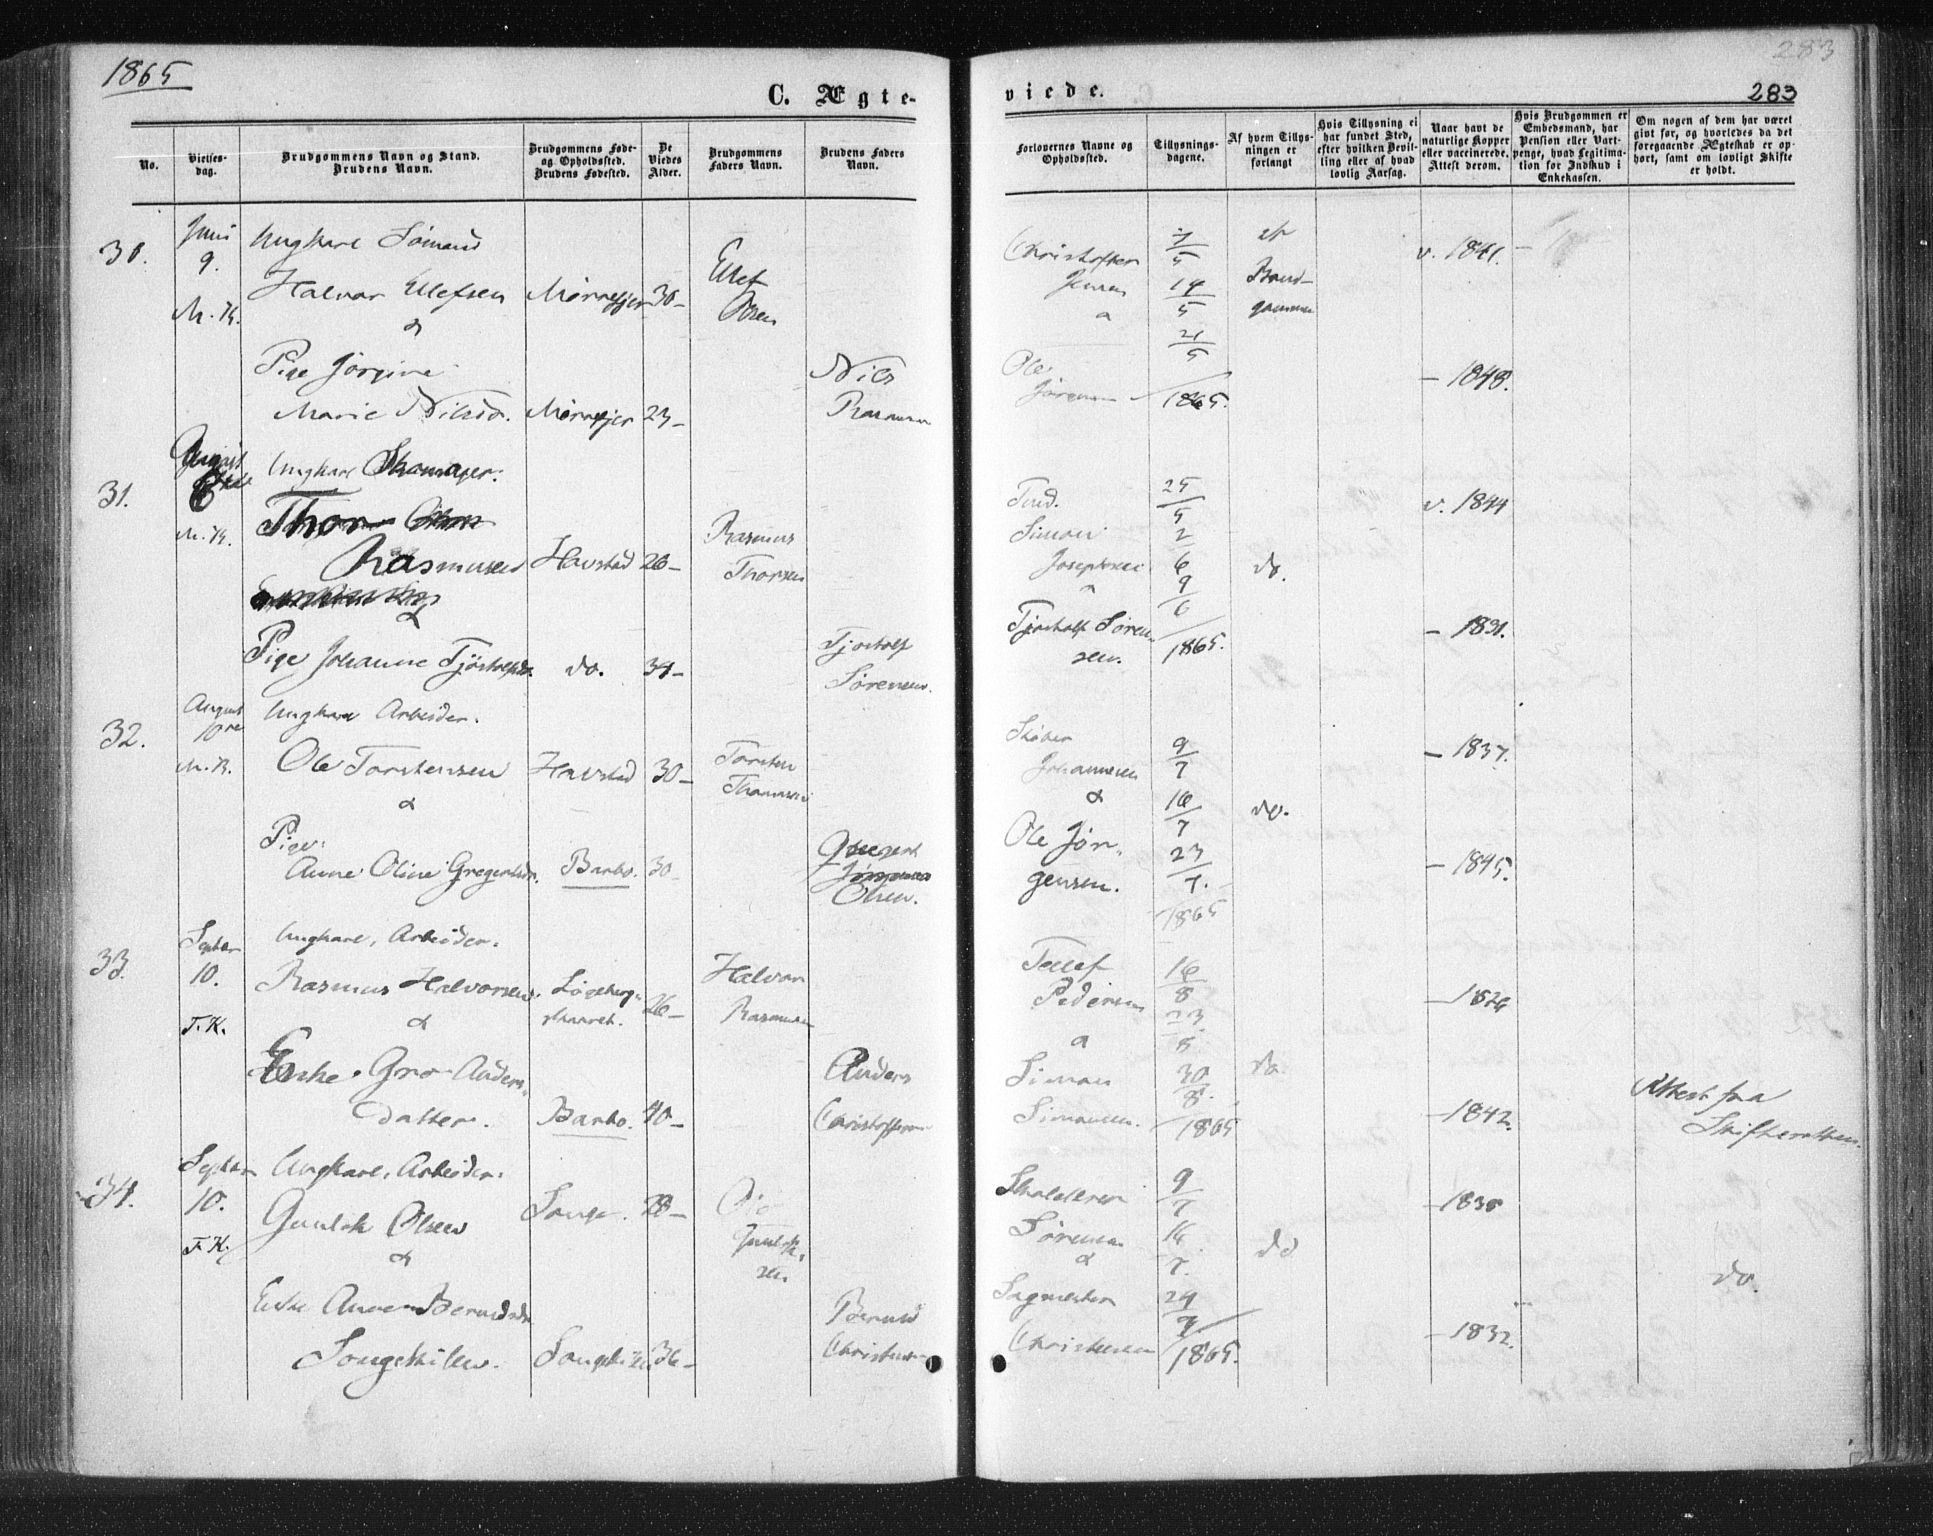 1865
283
C. Ægte-
viede.
283
No.
Vielses-
dag.
Brudgommens Navn og Stand.
Brudens Navn.
Brudgommens Føde-
og Opholdssted.
Brudens Fødested.
De
Viedes
Alder.
Brudgommens
Faders Navn.
Brudens Faders
Navn.
Forlovernes Navne og
Opholdssted.
Tillysnings-
dagene.
Af hvem Tillys-
ningen er
forlangt
Hvis Tillysning ei
har fundet Sted,
efter hvilken Bevil-
ling eller af hvad
lovlig Aarsag.
Naar havt de
naturlige Kopper
eller vaccinerede.
Attest derom.
Hvis Brudgommen er
Embedsmand, har
Pension eller Vart-
penge, hvad Legitima-
tion for Indskud i
Enkekassen.
Om nogen af dem har været
givt før, og hvorledes da det
foregaaende Ægteskab er op-
hørt, samt om lovligt Skifte
er holdt.
30.
Juni
9.
M. K.
Ungkarl Sømand
Halvor Ellefsen
&
Pige Jørgine
Marie Nilsd.
Mørrefjer
30-
Mørrefjer
23-
Ellef
Olsen
Nils
Rasmusen
Christoffer
Jensen
a
Ole
7/5
14/5
21/5
1865.
af
Brud-
gommen
v. 1841.
- 1848.
31.
August
M. K.
Ungkarl Skomager.
Thor
Rasmusen
&
Pige Johanne Tjøstolfsd.
Havstad
26-
do.
34-
Rasmus
Thorsen
Tjostolf
Sørensen.
Simon
Josephsen
Tjostolf Søren-
sen.
25/5
2/6
9/6
1865.
do.
v. 1844
- 1831.
32.
August
M. K.
Ungkarl Arbeider.
Ole Torstensen
&
Pige
Anne Oline Gregertsdr.
Havstad
30-
Barbo.
30-
Torsten
Olsen.
Johannesen
&
Ole Jør-
gensen.
9/7
16/7
23/7.
1865
do.
- 1837.
- 1845.
33.
Septbr
10.
T. K.
Ungkarl, Arbeider.
Rasmus Halvorsen.
&
Enke. Gro Anders-
datter.
26-
Barbo.
40-
Halvor
Rasmusen
Anders
Christoffersen
Tellef
Pedersen
a
Simon
Simonsen.
16/8
23/8
30/8.
1865
do
- 1842.
Attest fra
Skifteretten.
34.
Septbr
10.
T. K.
Ungkarl, Arbeider.
Gunlek Olsen
&
Enke Anne Berntsdr
Songekilen.
Songe.
28-
36-
Ole
Bernt
Christensen
Sørensen
&
Christensen
9/7
16/7.
24/7
1865.
do
- 1832.
do.